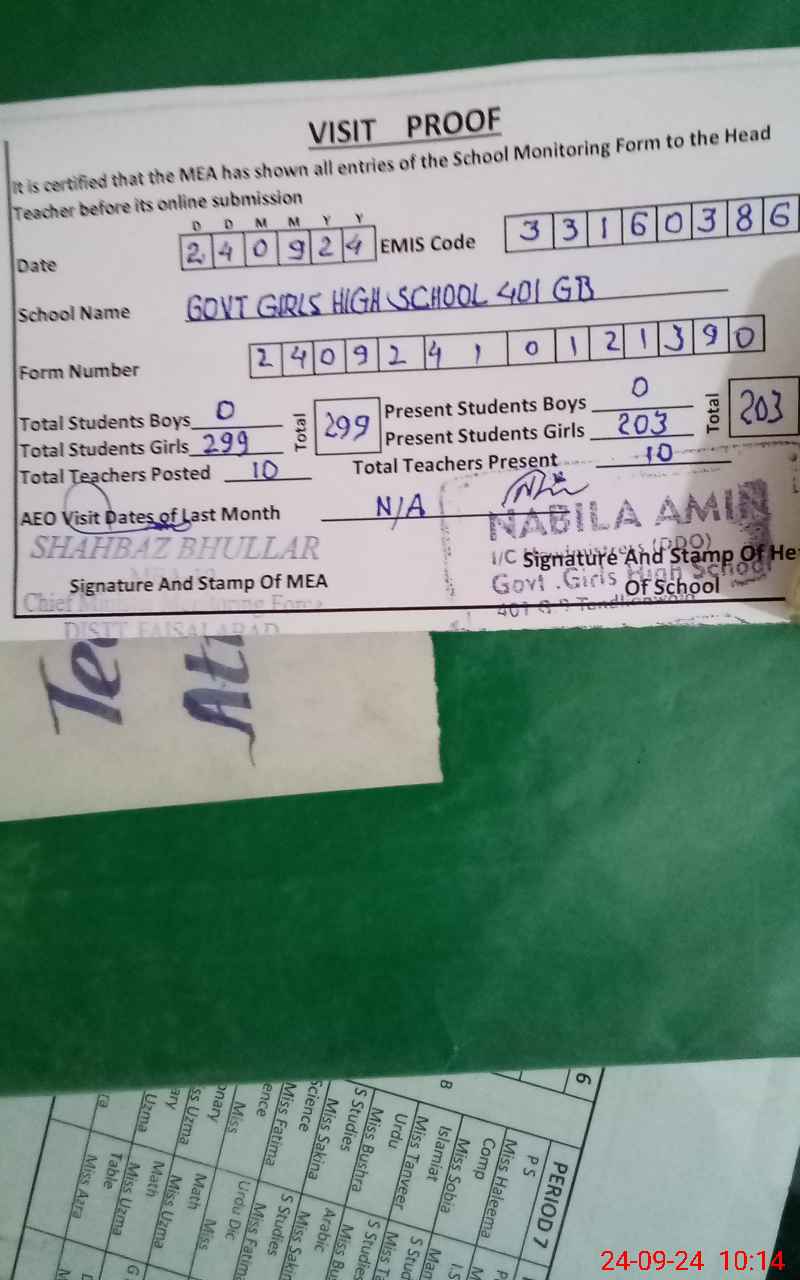 VISIT PROOF
It is certified that the MEA has shown all entries of the School Monitoring Form to the Head
Teacher before its online submission
D D M M Y Y
Date 2 4 0 9 2 4 EMIS Code 3 3 1 6 0 3 8 6
School Name GOVT GIRLS HIGH SCHOOL 401 GB
Form Number 2 4 0 9 2 4 1 0 1 2 1 3 9 0
Total Students Boys 0 Total 299 Present Students Boys 0 Total 203
Total Students Girls 299 Present Students Girls 203
Total Teachers Posted 10 Total Teachers Present 10
AEO Visit Dates of Last Month N/A
SHAHBAZ BHULLAR
NABILA AMIN
I/C (DDO)
Signature And Stamp Of MEA
Signature And Stamp Of He
Of School
Govt .Girls High School
Chief
DISTT FAISALABAD
401
Te
At
6
PERIOD 7
8
P S
Miss Haleema
Comp
Miss Sobia
Islamiat
Miss Tanveer
Urdu
Miss Bushra
S Studies
Miss Sakina
Science
Miss Fatima
ence
Miss
onary
ss Uzma
ary
Uzma
S Stud
Miss Ta
S Studies
Miss Bu
Arabic
Miss Saki
S Studies
Miss Fatim
Urdu Dic
Miss
Math
Miss Uzma
Math
Miss Uzma
Table
Miss Azra
24-09-24 10:14